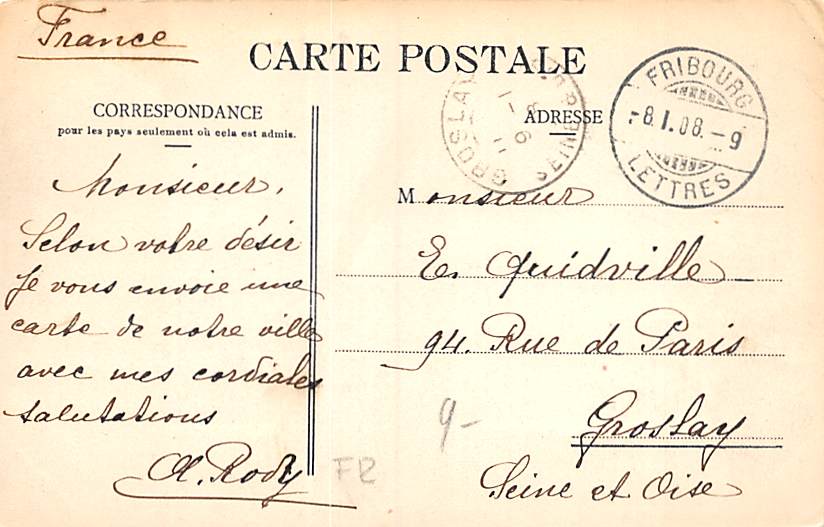 France
CARTE POSTALE
CORRESPONDANCE
pour les pays seulement où cela est admis.
Monsieur,
Selon votre désir
Je vous envoie une
carte de notre ville
avec mes cordiales
salutations
A. Rody
FR
ADRESSE
Monsieur
E. Quidville
94. Rue de Paris
Groslay
Seine et Oise
9-
FRIBOURG
-8.I.08.-9
LETTRES
GROSLAY
SEINE